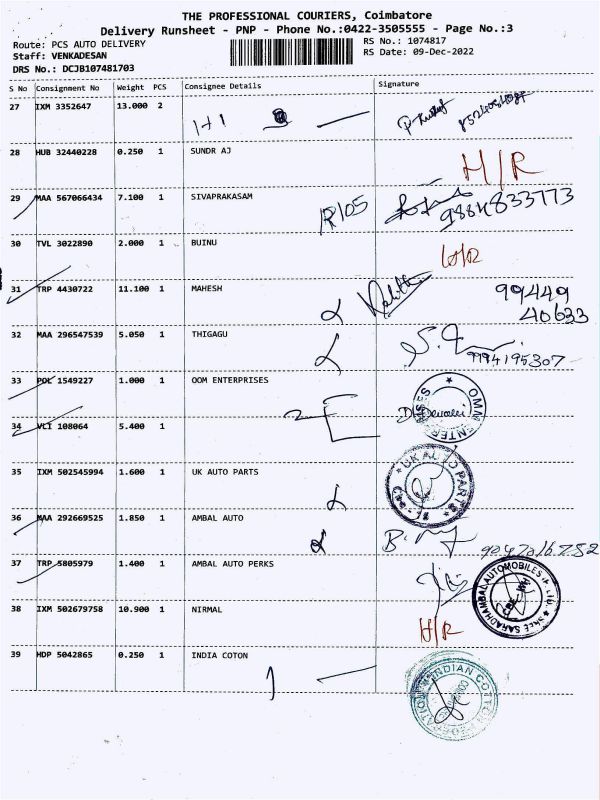 THE PROFESSIONAL COURIERS, Coimbatore
Delivery Runsheet - PNP - Phone No.:0422-3505555 - Page No.:3
Route: PCS AUTO DELIVERY
RS No.: 1074817
Staff: VENKADESAN
RS Date: 09-Dec-2022
DRS No.: DCJB107481703
S No Consignment No Weight PCS Consignee Details Signature
27 IXM 3352647 13.000 2
28 HUB 32440228 0.250 1 SUNDR AJ H/R
29 MAA 567066434 7.100 1 SIVAPRAKASAM R105 9884833773
30 TVL 3022890 2.000 1 BUINU
31 TRP 4430722 11.100 1 MAHESH 99449
40633
32 MAA 296547539 5.050 1 THIGAGU 9994195307
33 POL 1549227 1.000 1 OOM ENTERPRISES OMM ENTERPRISES
34 VLI 108064 5.400 1
35 IXM 502545994 1.600 1 UK AUTO PARTS UK AUTO PARTS
36 MAA 292669525 1.850 1 AMBAL AUTO 9047016752
37 TRP 5805979 1.400 1 AMBAL AUTO PERKS SREE SARADHAMBAL AUTOMOBILES P LTD.
38 IXM 502679758 10.900 1 NIRMAL H/R
39 HDP 5042865 0.250 1 INDIA COTON INDIAN COTTON